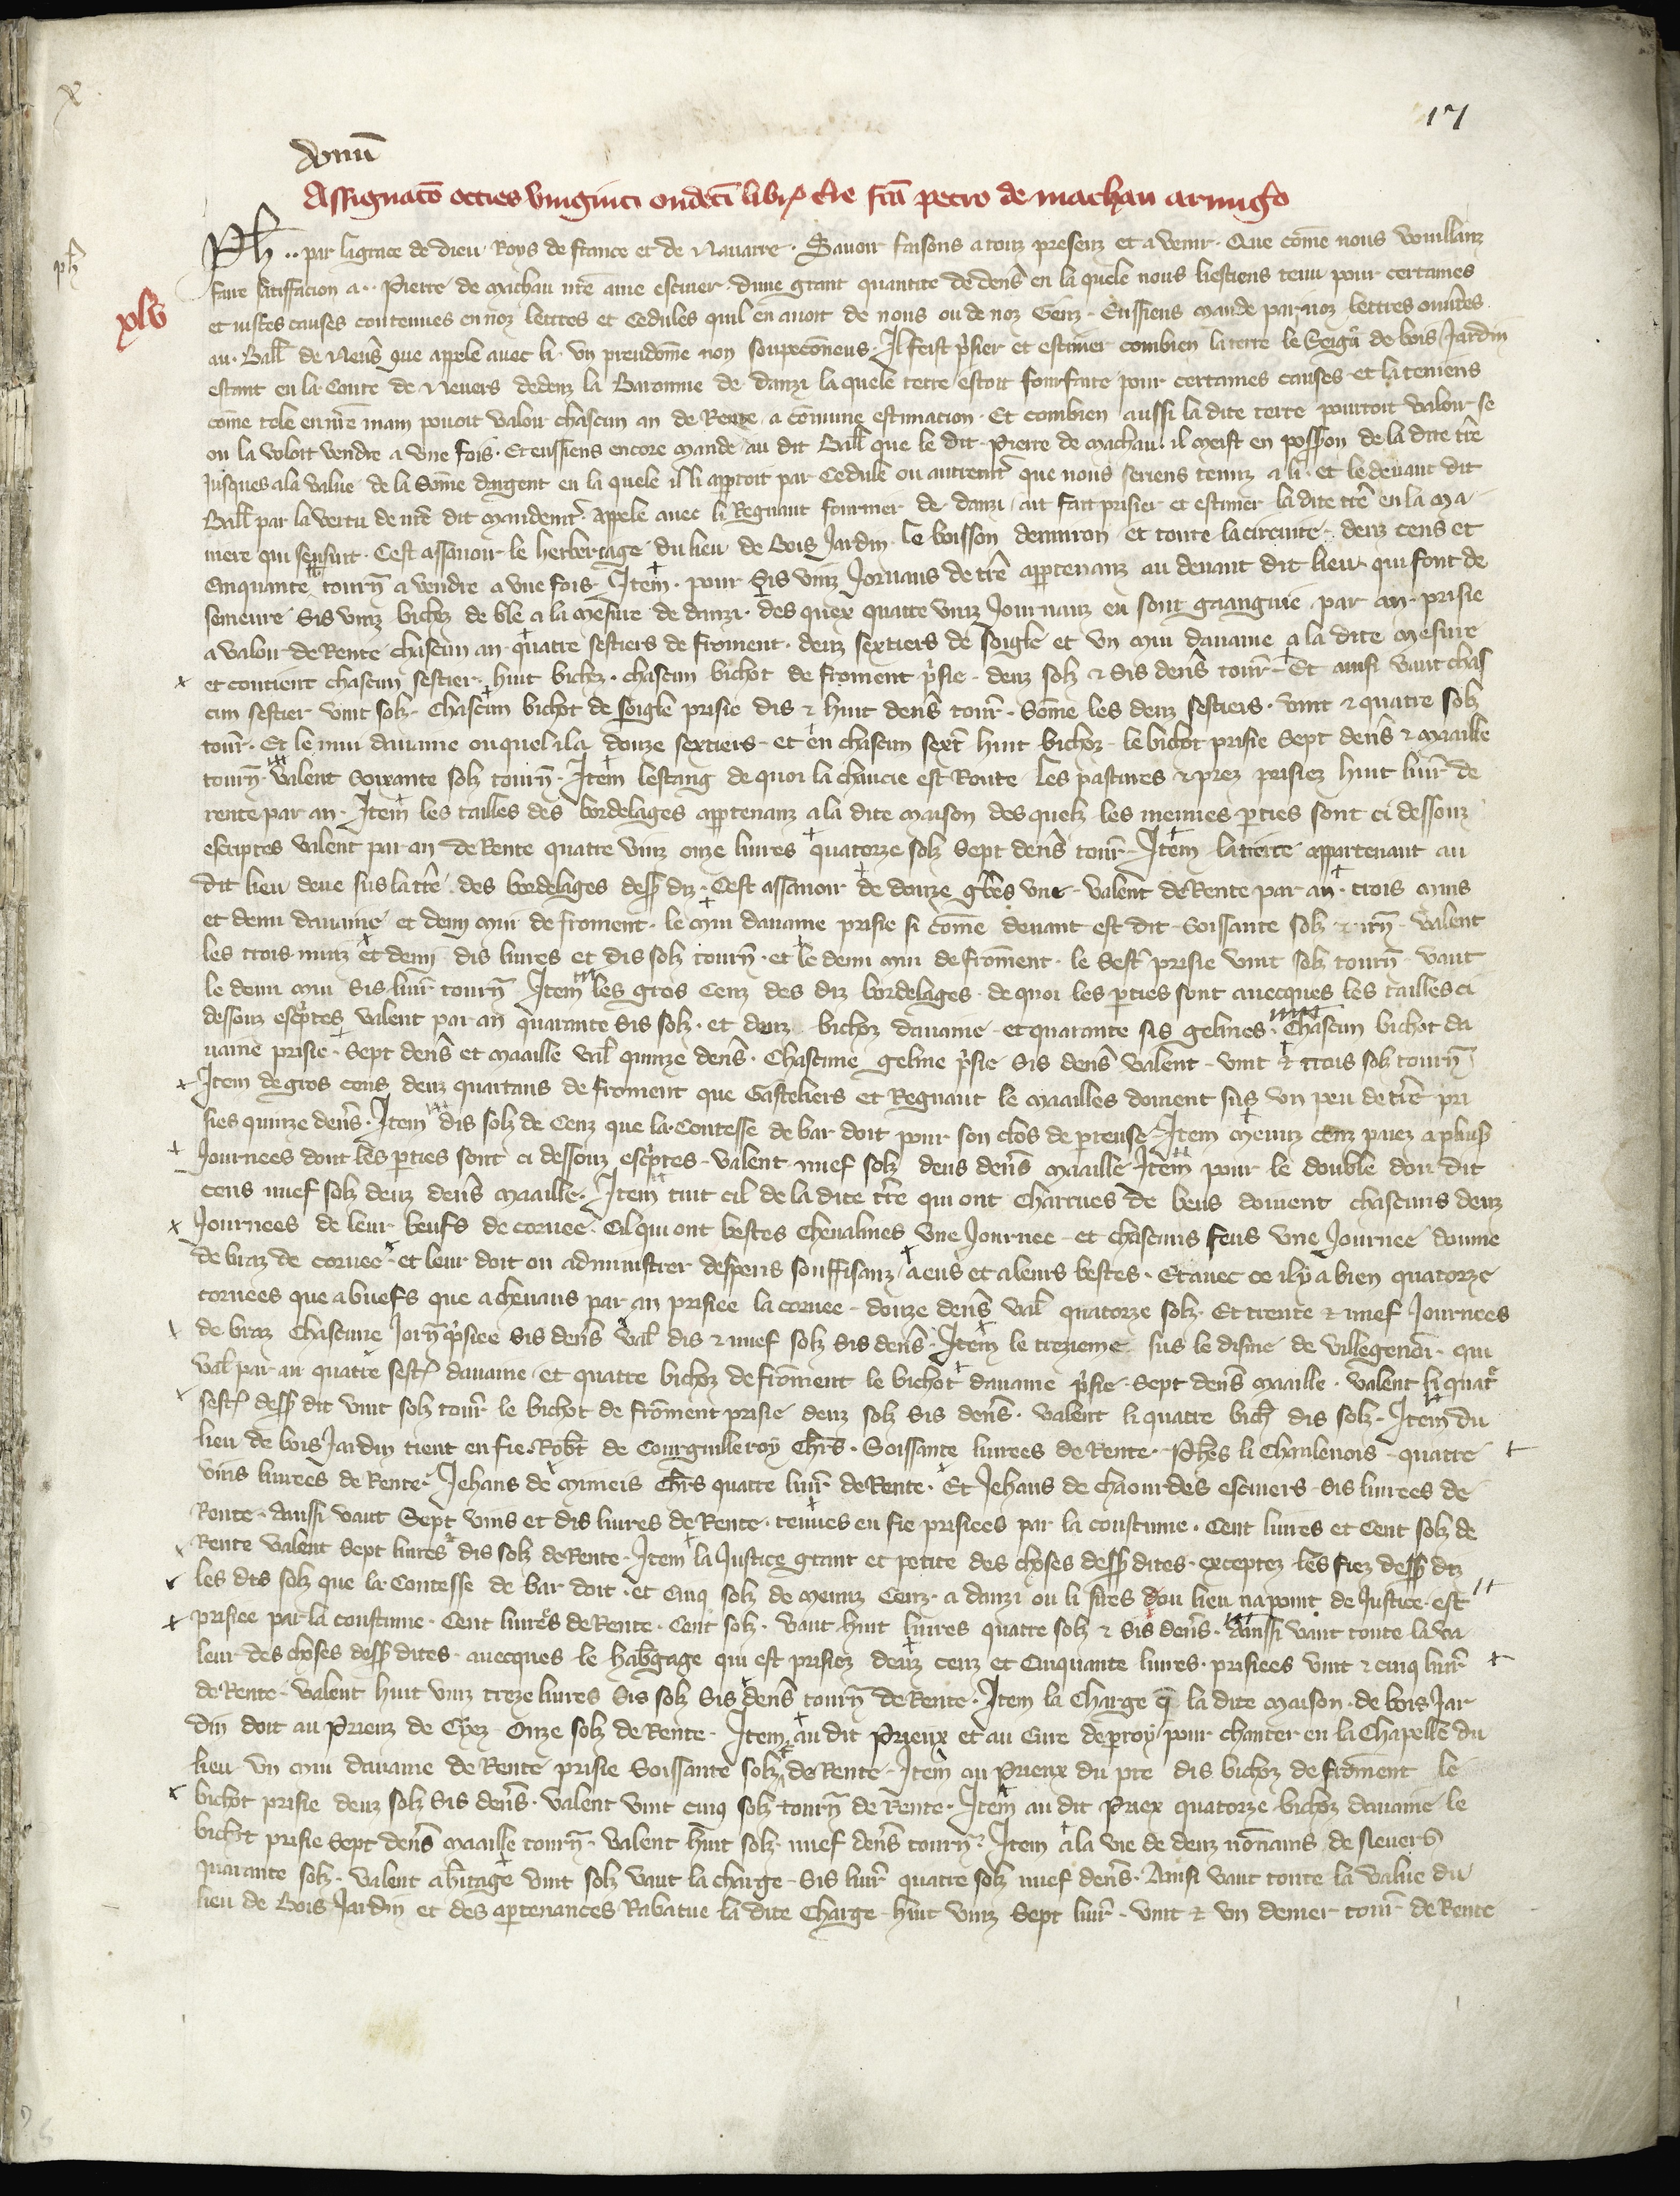 17
donum
Assignatio octies viginti undeci libr. tre fca petro de machau armigo
Ph .. par la grace de dieu Roys de france et de Navarre. Savoir faisons a touz presenz et a venir. Que come nous vouillanz
ph
faire satisfacion a .. Pierre de Machau nre ame escuier. dune grant quantite de dens en la quele nous liestiens tenu pour certaines
xlv
et justes causes contenues en noz lettres et Cedules quil en avoit de nous ou de noz Genz. Eussiens mande par noz lettres ouvtes
au. Ball de Nevs que appele avec li. un preudome non soupeconeus. Il feist psier et estimer combien la terre le Seigr de bois Jardin
estant en la Conte de Nevers dedenz la Baronnie de danzi la quele terre estoit fourfaite pour certaines causes et la teniens
come tele en nre main pouoit valoir chascun an de Rente a comune estimacion. Et combien aussi la dite terre pourroit valoir se
on la voloit vendre a une fois. Et eussiens encore mande au dit Ball que le dit Pierre de Machau. il meist en possion de la dite tre
jusques a la value de la Some dargent en la quele il li apparroit par Cedule ou autremt que nous seriens tenuz a li. et le devant dit
Ball par la vertu de nre dit mandemt. appele avec li Regnaut fournier de danzi ait fait prisier et estimer la dite tre en la ma
niere qui sensuit. Cest assavoir le herbergage du lieu de Bois Jardin le boisson denviron et toute la circuite. deuz cens et
Cinquante tourn a vendre a une fois. Item. pour Sis vinz Jornaus de tre appartenanz au devant dit lieu qui sont de
semeure Sis vinz bichez de ble a la mesure de danzi. des quex quatre vinz Journauz en sont gaangnie par an. prisie
a valoir de Rente chascun an quatre sestiers de froment. deuz sextiers de soigle et un mui davaine a la dite mesure
et contient chascun sestier huit bichez. chascun bichot de froment psie. deuz solz & sis dens tour. Et ainsi vaut chas
cun sestier vint solz. Chascun bichot de soigle prisie dis & huit dens tour. Some les deuz sestiers. vint & quatre solz
tour. Et le mui davaine ouquel il a douze sextiers. et en chascun sext huit bichoz. le bichot prisie Sept dens & maaille
tourn. Valent Soixante solz tourn. Item lestang de quoi la chaucie est Route les pastures & prez prisiez huit livr de
rente par an. Item les tailles des bordelages appartenanz a la dite maison des quelz les menues pties sont ci dessouz
escriptes valent par an de Rente quatre vinz onze livres quatorze solz Sept dens tour. Item la tierce appartenant au
dit lieu deue sus la tre des bordelages dess diz. Cest assavoir de douze gbes une. valent de Rente par an. trois muis
et demi davaine et demi mui de froment. le mui davaine prisie si come devant est dit Soissante solz & tn. valent
les trois muiz et demi dis livres et dis solz tourn. et le demi mui de froment. le Sest prisie vint solz tourn. vaut
le demi mui Sis livr tourn. Item les gros Cenz des diz bordelages. de quoi les pties sont avecques les tailles ci
dessouz escptes valent par an quarante Sis solz. et deuz bichoz davaine et quarante sis gelines. Chascun bichot da
vaine prisie. Sept dens et maaille val quinze dens. Chascune geline psie Sis dens valent vint & trois solz tourn
Item de gros cens deuz quartaus de froment que Gasteliers et Regnaut le mailles doivent sus un peu de tre pri
sies quinze dens. Item dis solz de Cenz que la Contesse de bar doit pour son clos de perreuse. Item menuz cenz paiez a plusrs
Journees dont les pties sont ci dessouz escptes. valent nuef solz deus dens maaille Item pour le double dou dit
cens nuef solz deuz dens maaille. Item tuit cil de la dite tre qui ont Charrues de beus doivent chascuns deuz
Journees de leur beufs de corvee. Cil qui ont bestes Chevalines une Journee. et chascuns feus une Journee domme
de braz de corvee. et leur doit on administrer despens souffisanz a eus et a leurs bestes. Et avec ce il y a bien quatorze
corvees que a buefs que a chevaus par an prisiee la corvee. douze dens val quatorze solz. Et trente & nuef Journees
de braz Chascune Jorn psiee sis dens val dis & nuef solz sis dens. Item le trezieme sus le disme de villegenoi. qui
val par an quatre sest davaine et quatre bichoz de froment le bichot davaine psie. Sept dens maaille. valent li quatr
sest dess dit vint solz tour. le bichot de froment prisie deuz solz sis dens. valent li quatre bich dis solz. Item du
lieu de bois Jardin tient en fie. Robt de Courguilleroy chrs. Soissante livrees de Rente. Phes li Chaulenois quatre
vins livrees de Rente. Jehans de mimeis Chrs quatre livr de Rente. Et Jehans de chaourdes escuiers. Sis livrees de
Rente. Aussi vaut Sept vins et dis livres de Rente. tenues en fie prisiees par la coustume. Cent livres et Cent solz de
Rente valent Sept livres dis solz de Rente. Item la Justice grant et petite des choses dess dites. exceptez les fiez dess dz
les dis solz que la Contesse de bar doit. et Cinq solz de menuz Cenz. a danzi ou li sires dou lieu na point de Justice. est
prisiee par la coustume. Cent livres de Rente. Cent solz. vaut huit livres quatre solz & sis dens. Ainssi vaut toute la va
leur des choses dess dites. avecques le habgage qui est prisiez deuz cenz et Cinquante livres. prisiees vint & cinq livr
de Rente. valent huit vinz treze livres Sis solz Sis dens tourn de Rente. Item la Charge q la dite maison de bois Jar
din doit au Prieuz de Cyez Onze solz de Rente. Item au dit Prieux et au Cure de perroy pour chanter en la Chapelle du
lieu un mui davaine de Rente prisie Soissante solz de Rente. Item au Prieux du pre dis bichoz de froment le
bichot prisie deuz solz Sis dens. valent vint cinq solz tourn de Rente. Item au dit Priex quatorze bichoz davaine le
bichot prisie Sept dens maaille tourn. valent huit solz. nuef dens tourn. Item a la vie de deuz nonains de Nevers
quarante solz. valent abitage vint solz vaut la charge. Sis livr quatre solz nuef dens. Ainsi vaut toute la value du
lieu de Bois Jardin et des apartenances Rabatue la dite Charge. huit vinz Sept livr. vint & un denier tour de Rente